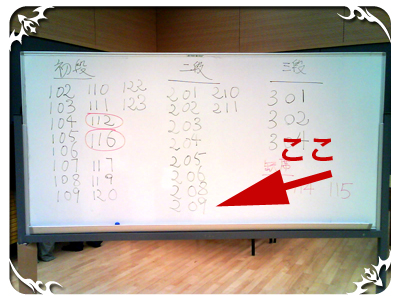 初段
102 110 122
103 111 123
104 112
105 116
106
107 117
108 119
109 120
二段
201 210
202 211
203
204
205
206
208
209
三段
301
302
ここ
115